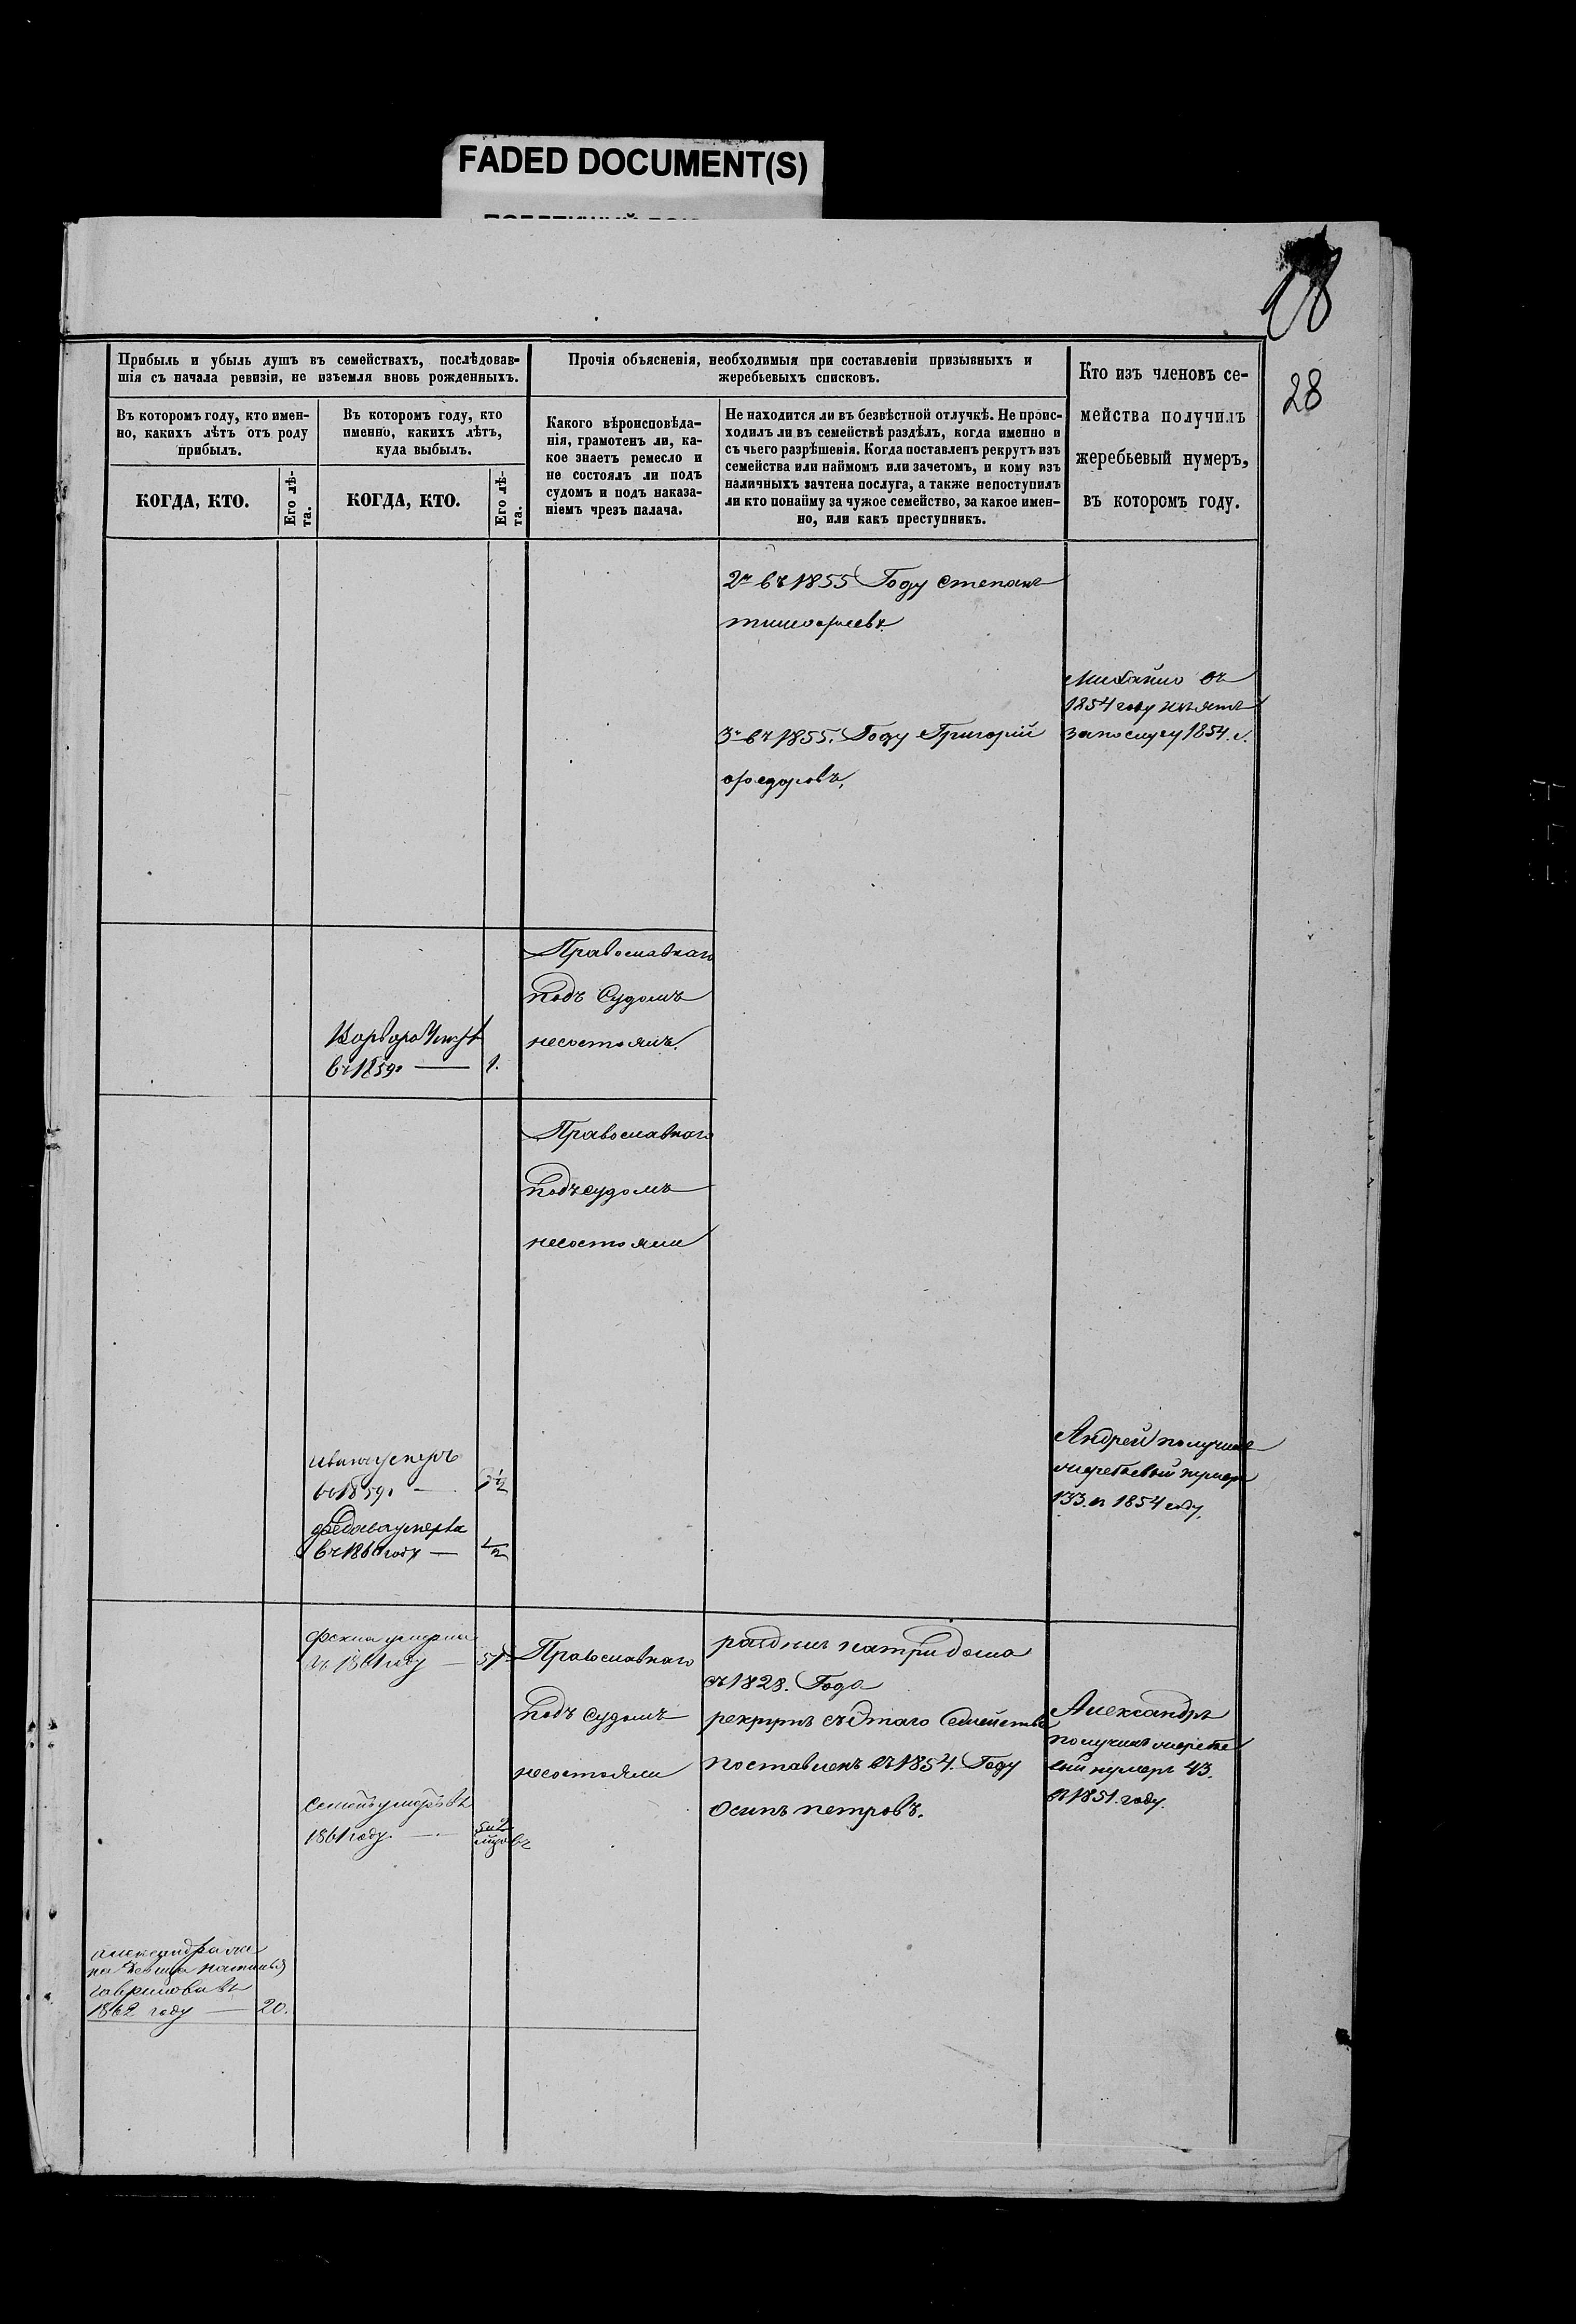 FADED DOCUMENT(S)
28
Прибыль и убыль душъ въ семействахъ, послѣдовав-
шія съ начала ревизіи, не изъемля вновь рожденныхъ.
Въ которомъ году, кто имен-
но, какихъ лѣтъ отъ роду
прибылъ.
КОГДА, КТО.
Его лѣ-
та.
Въ которомъ году, кто
именно, какихъ лѣтъ,
куда выбылъ.
КОГДА, КТО.
Его лѣ-
та.
Прочія объясненія, необходимыя при составленіи призывныхъ и
жеребьевыхъ списковъ.
Какого вѣроисповѣда-
нія, грамотенъ ли, ка-
кое знаетъ ремесло и
не состоялъ ли подъ
судомъ и подъ наказа-
ніемъ чрезъ палача.
Не находится ли въ безвѣстной отлучкѣ. Не проис-
ходилъ ли въ семействѣ раздѣлъ, когда именно и
съ чьего разрѣшенія. Когда поставленъ рекрутъ изъ
семейства или наймомъ или зачетомъ, и кому изъ
наличныхъ зачтена послуга, а также непоступилъ
ли кто понайму за чужое семейство, за какое имен-
но, или какъ преступникъ.
Кто изъ членовъ се-
мейства получилъ
жеребьевый нумеръ,
въ которомъ году.
2й въ 1855 Году Степанъ
тимофеевъ
Михайло въ
1854 году изъятъ
запослугу 1854 г.
3й въ 1855. Году Григорій
федоровъ,
Православнаго
подъ Судомъ
несостоялъ.
Варвара
въ 1859. — 1.
Православнаго
подъ судомъ
несостояли
иванъ умеръ
въ 1859. —
федосья умерла
въ 186 году — 1/2
Андрей получилъ
жеребьевый нумеръ
133. въ 1854 году.
Фекла умерла
въ 1861 году —
Православнаго
подъ судомъ
несостояли
раздѣлъ натри дома
съ 1828. Года
рекрутъ съ Этаго Семейства
поставленъ въ 1854. Году
Осипъ петровъ.
Александръ
получилъ жеребье
вый нумеръ 43.
въ 1851. году.
Семенъ умеръ въ
1861 году. —
александра же
на наталья
гаврилова въ
1862 году — 20.